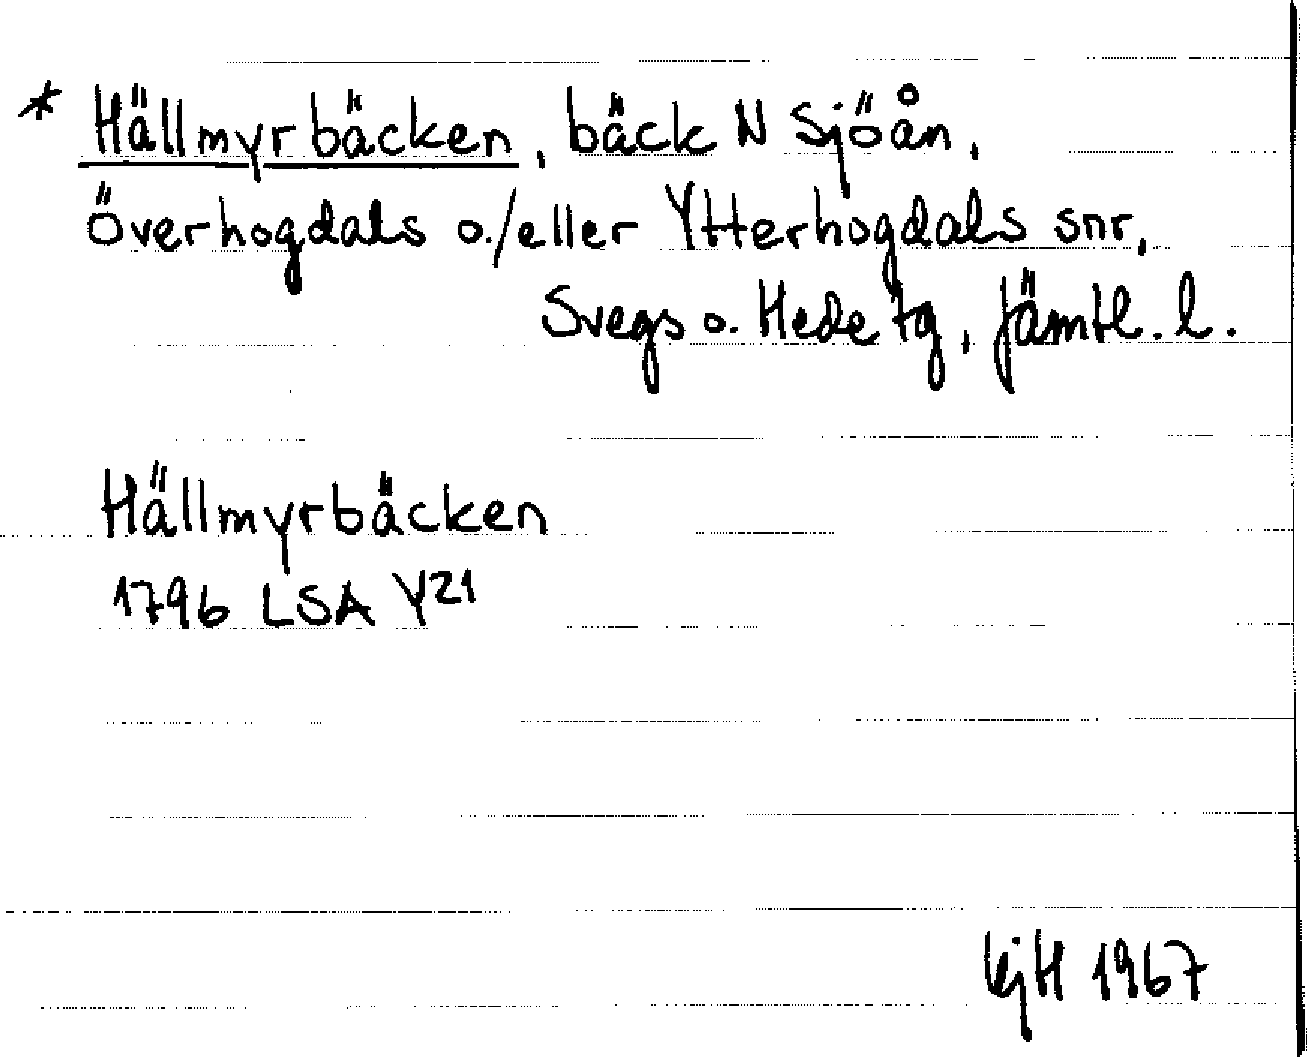 * Hällmyrbäcken, bäck N Sjöån,
Överhogdals o./eller Ytterhogdals snr,
Svegs o. Hede tg, Jämtl. l.
Hällmyrbäcken
1796 LSA Y21
1967